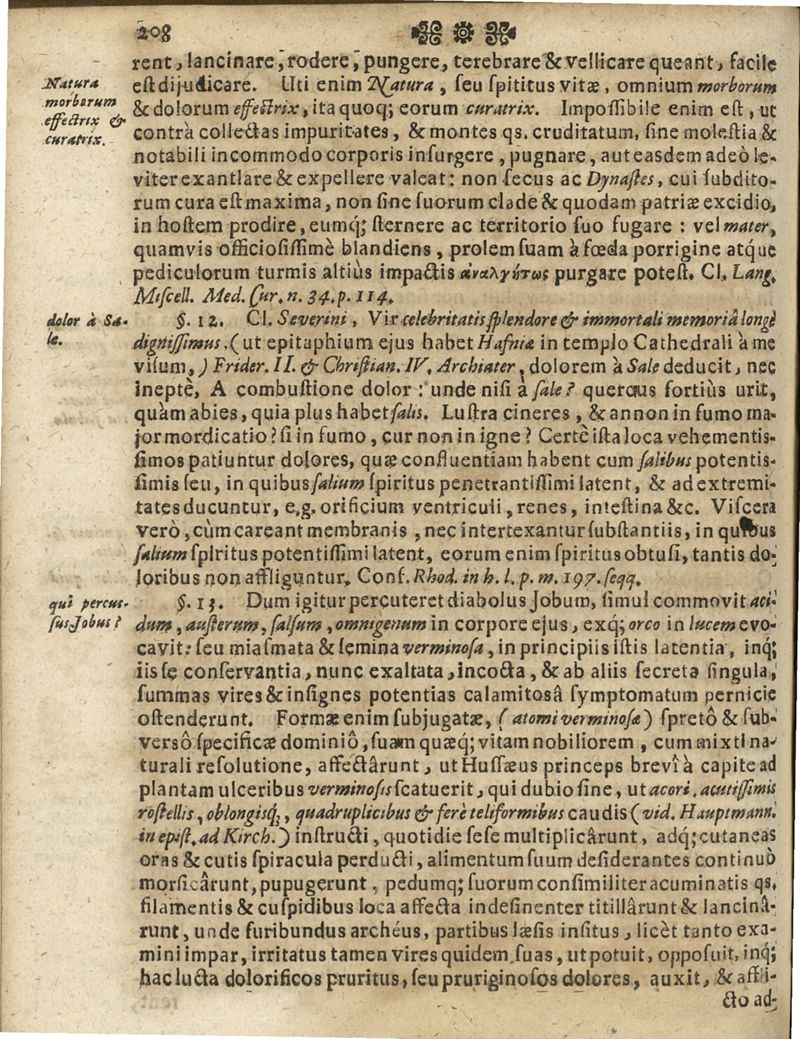 208
rent, lancinare, rodere, pungere, terebrare & vellicare queant, facile
Natura
morborum
effectrix &
curatrix.
est dijudicare. Uti enim Natura, seu spititus vitæ, omnium morborum
& dolorum effectrix, ita quoq; eorum curatrix. Impossibile enim est, ut
contrà collectas impuritates, & montes qs. cruditatum, sine molestia &
notabili incommodo corporis insurgere, pugnare, aut easdem adeò le-
viter exantlare & expellere valeat: non secus ac Dynastes, cui subdito-
rum cura est maxima, non sine suorum clade & quodam patriæ excidio,
in hostem prodire, eumq́; sternere ac territorio suo fugare: vel mater,
quamvis officiosissimè blandiens, prolem suam à fœda porrigine atq́ue
pediculorum turmis altiùs impactis ἀναλγήτως purgare potest. Cl. Lang.
Miscell. Med. Cur. n. 34. p. 114.
dolor à Sa-
le.
§. 12. Cl. Severini, Vir celebritatis splendore & immortali memoriâ longè
dignissimus, (ut epitaphium ejus habet Hafniæ in templo Cathedrali à me
visum,) Frider. II. & Christian. IV. Archiater, dolorem à Sale deducit, nec
ineptè, A combustione dolor: unde nisi à sale? quercus fortiùs urit,
quàm abies, quia plus habet salis. Lustra cineres, & annon in fumo ma-
jor mordicatio? si in fumo, cur non in igne? Certè ista loca vehementis-
simos patiuntur dolores, quæ confluentiam habent cum salibus potentis-
simis seu, in quibus salium spiritus penetrantissimi latent, & ad extremi-
tates ducuntur, e.g. orificium ventriculi, renes, intestina &c. Viscera
verò, cùm careant membranis, nec intertexantur substantiis, in quibus
salium spiritus potentissimi latent, eorum enim spiritus obtusi, tantis do-
loribus non affliguntur. Conf. Rhod. in h. l. p. m. 197. seqq.
quî percus-
sus Jobus?
§. 13. Dum igitur percuteret diabolus Jobum, simul commovit aci-
dum, austerum, salsum, omnigenum in corpore ejus, exq; orco in lucem evo-
cavit: seu miasmata & semina verminosa, in principiis istis latentia, inq́;
iis se conservantia, nunc exaltata, incocta, & ab aliis secreta singula,
summas vires & insignes potentias calamitosâ symptomatum pernicie
ostenderunt. Formæ enim subjugatæ, (atomi verminosæ) spretô & sub-
versô specificæ dominiô, suam quæq́; vitam nobiliorem, cum mixti na-
turali resolutione, affectârunt, ut Hussæus princeps brevî à capite ad
plantam ulceribus verminosis scatuerit, qui dubio sine, ut acori, acutissimis
rostellis, oblongisq́;, quadruplicibus & ferè teliformibus caudis (vid. Hauptmann.
in epist. ad Kirch.) instructi, quotidie sese multiplicârunt, adq́; cutaneas
oras & cutis spiracula perducti, alimentum suum desiderantes continuò
morsicârunt, pupugerunt, pedumq; suorum consimiliter acuminatis qs.
filamentis & cuspidibus loca affecta indesinenter titillârunt & lancinâ-
runt, unde furibundus archéus, partibus læsis insitus, licèt tanto exa-
mini impar, irritatus tamen vires quidem suas, ut potuit, opposuit, inq́;
hac lucta dolorificos pruritus, seu pruriginosos dolores, auxit, & affli-
cto ad-